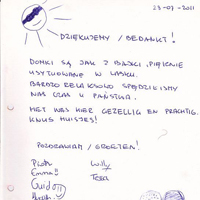 23-07-2011
DZIĘKUJEMY / BEDANKT!
DOMKI SĄ JAK Z BAJKI, PIĘKNIE
USYTUOWANE W LASKU.
BARDZO RELAKSOWO SPĘDZILIŚMY
NAS CZAS U PAŃSTWA.
HET WAS HIER GEZELLIG EN PRACHTIG.
KNUS HUISJES!
POZDRAWIAM / GROETEN!
Piotr Willy
Emma
Guido